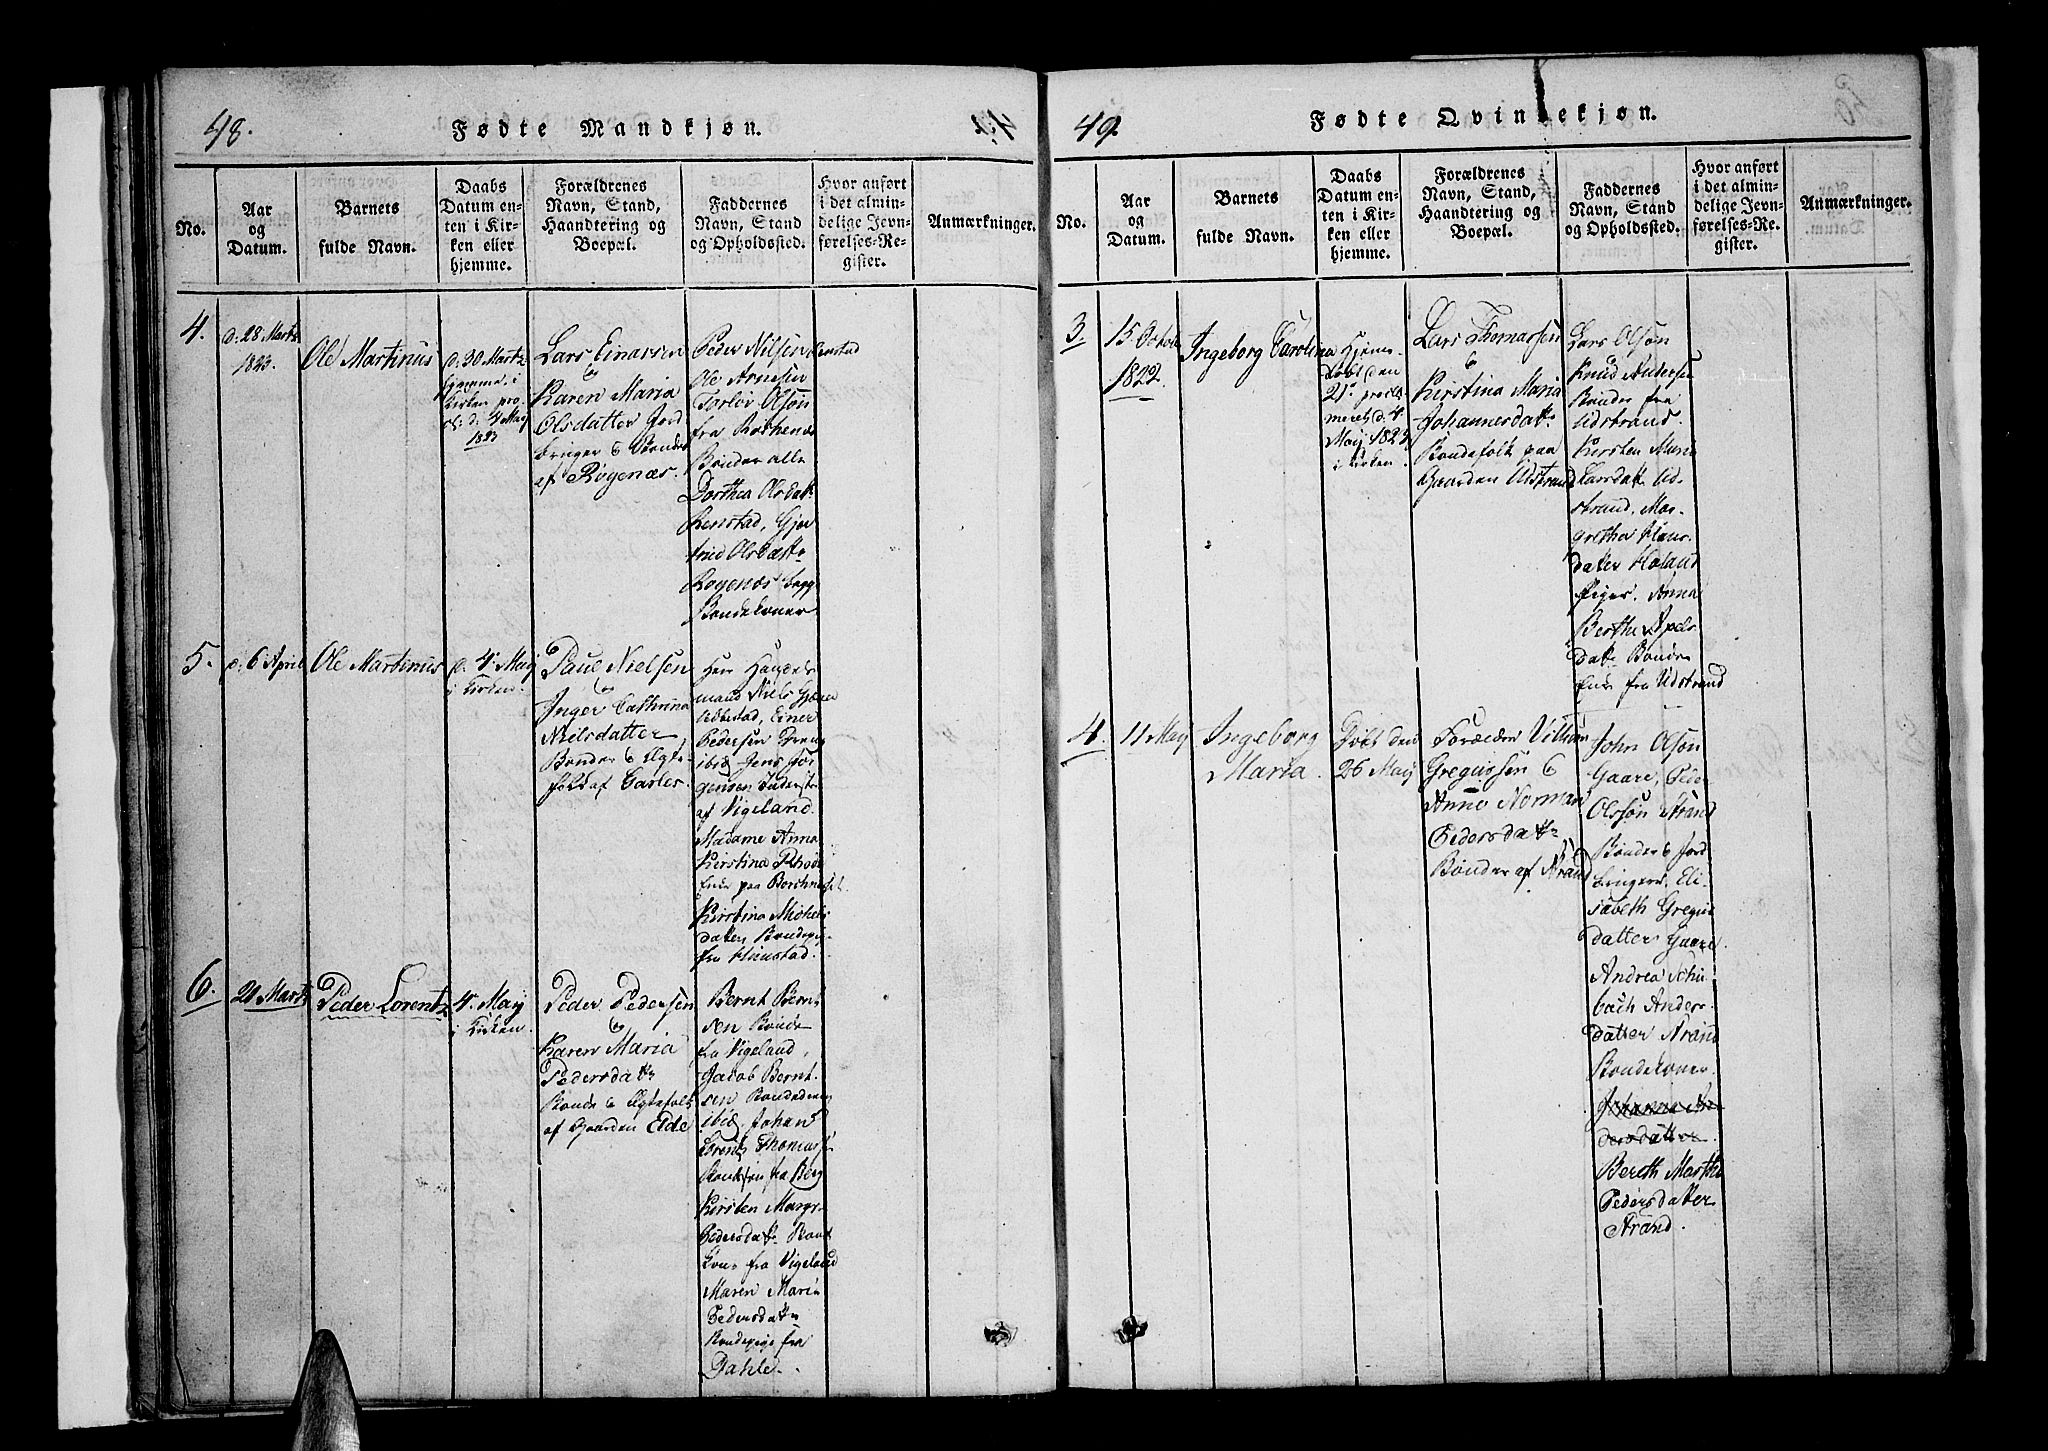 48.
Fødte Mandkjøn.
No.
Aar
og
Datum.
Barnets
fulde Navn.
Daabs
Datum en-
ten i Kir-
ken eller
hjemme.
Forældrenes
Navn, Stand,
Haandtering og
Boepæl.
Faddernes
Navn, Stand
og Opholdssted.
Hvor anført
i det almin-
delige Jevn-
førelses-Re-
gister.
Anmærkninger.
4.
d. 28 Martz
1823.
Ole Martinus
d. 30 Martz
hjemme, i
Kirken pro-
cl: d: 4 Maij
1823
Lars Einarsen
&
Karen Maria
Olsdatter Jord
bruger & Bønder
af Rogenæs.
Peder Nilsen
Renstad
Ole Arnesen
Torlov Olsøn
fra
Bønder alle
Dorthea Olsdatt
Renstad, Gjer
tried Olsdatt
Rogenæs begge
Bondekoner.
5.
d. 6 April
Ole Martinus
d. 4 Maij
i Kirken.
Paul Nielsen
&
Inger Cathrina
Nielsdatter
Bonde & Egte-
folk af
Herr Handels
mand Niels
Einer
Pedersen Dreng
ibid, Jens Jør
gensen
af Vigeland.
Madame Anna
Kirstina
Enke paa
Kirstina Michels
datter Bondepige
fra
6.
Martz
Peder Lorentz
4. Maij
i Kirken.
Peder Pedersen
&
Karen Maria
Pedersdatt
Bonde & Egtefolk
af Gaarden Eide
Bernt Bernt
sen Bonde
fra Vigeland,
Jacob Bernt-
sen Bondedreng
ibid, Johan
Lorents Thomass
fra Berg
Kirsten Margr.
Pedersdatt Bond
Kone fra Vigeland
Maren Maria
Pedersdatt
Bondepige fra
Dahle.
49.
Fødte Qvindekjøn.
No.
Aar
og
Datum.
Barnets
fulde Navn.
Daabs
Datum en-
ten i Kir-
ken eller
hjemme.
Forældrenes
Navn, Stand,
Haandtering og
Boepæl.
Faddernes
Navn, Stand
og Opholdssted.
Hvor anført
i det almin-
delige Jevn-
førelses-Re-
gister.
Anmærkninger.
3.
15 Octob
1822.
Ingeborg Carolina
Hjemme-
døbt den
21. procla
meret d. 4.
Maij 1823
i Kirken.
Lars Thomassen
&
Kirstina Maria
Johannesdatt
Bondefolk paa
Gaarden Udstrand
Lars Olsøn
Knud Andersen
Bønder fra
Udstrand.
Kirsten Maria
Larsdatt Ud-
strand. Mar-
gretha Hans-
datter
Piger. Anna
Bertha Apels
datt Bonde
Enke fra Udstrand
4.
11 Maij
Ingeborg
Maria.
Døbt den
26 Maij
Forældre Villum
Gregussen &
Anne Norman
Pedersdatt
Bønder af Strand
John Olsøn
Gaare, Peder
Olssøn Strand
Bønder & Jord
brugere, Eli-
sabeth Gregus
datter Gaare
Andrea Schu-
bach Anders-
datter Strand
Bondekoner.
Johanna An
dersdatter
Bereth Martha
Pedersdatter
Strand.